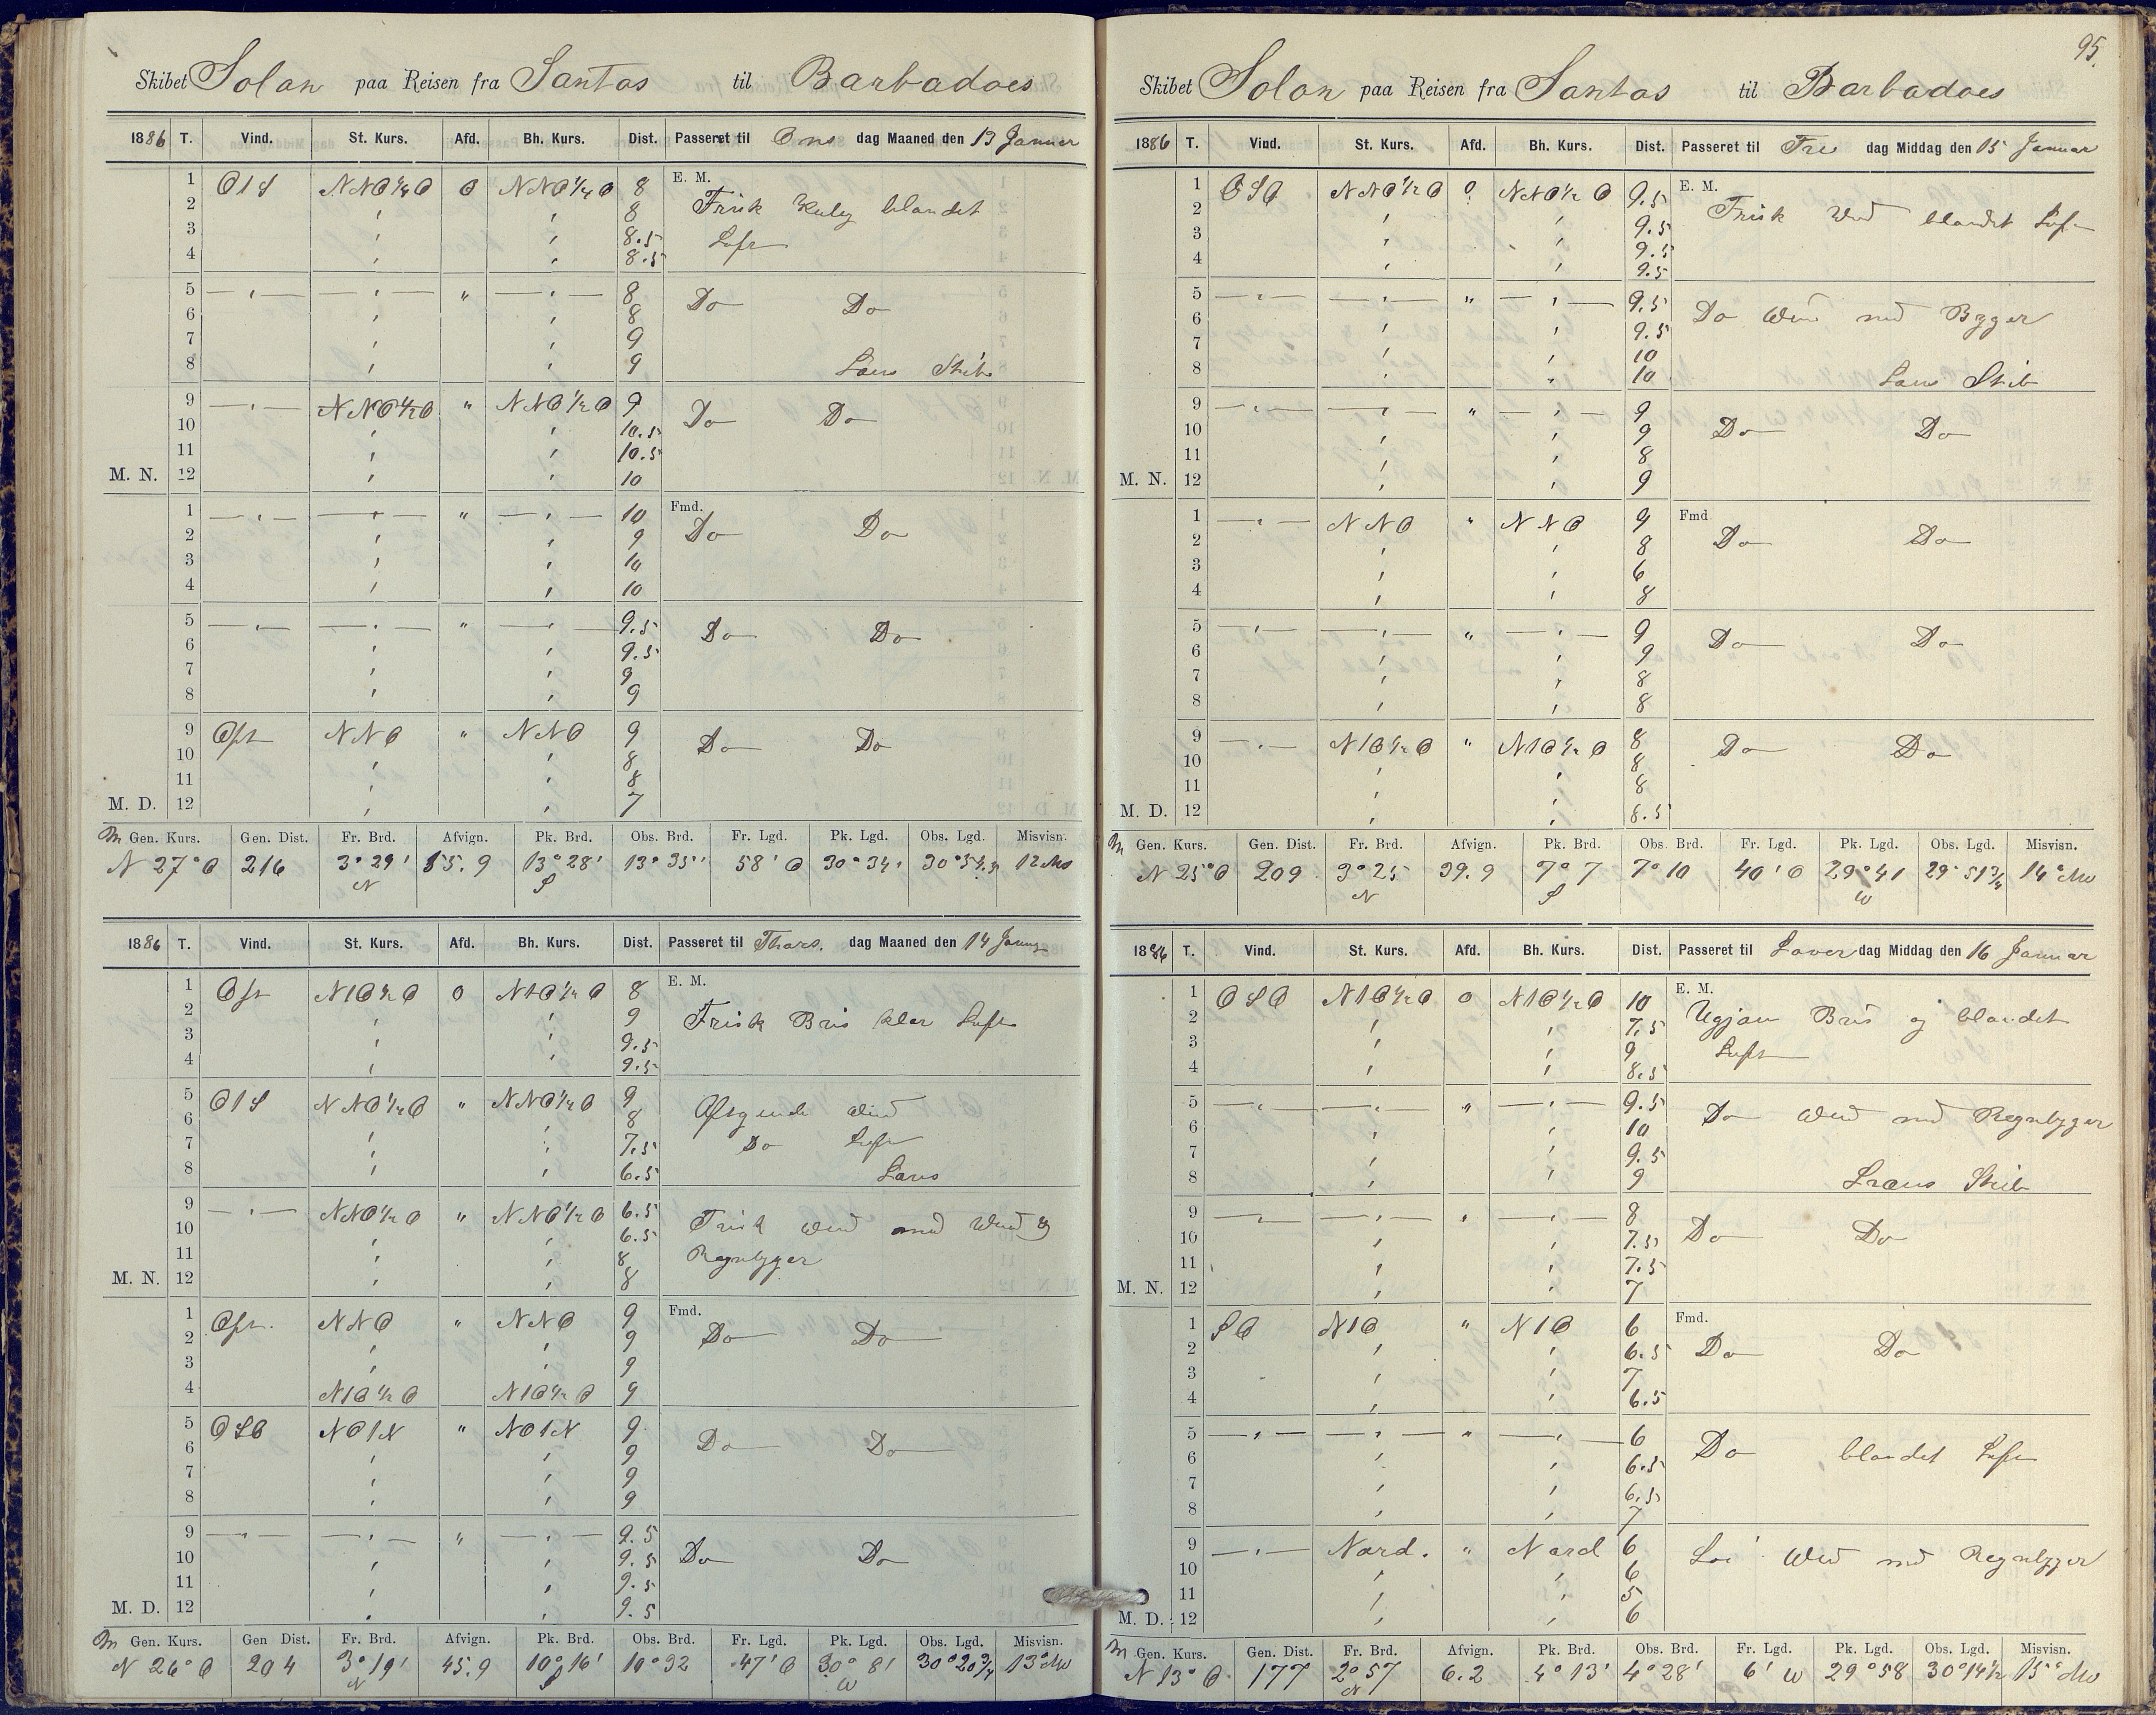 Skibet Solon paa Reisen fra Santos til Barbadoes
1886 T. Vind. St. Kurs. Afd. Bh. Kurs. Dist. Passeret til Ons dag Maaned den 13 Januar
1 O1S NNO¼O 0 NNO¼O 8 E. M.
2 " " 8 Frisk Kuling blandet
3 " " 8.5 Luft
4 " " 8.5
5 — " — — " — " — " — 8 Do Do
6 " " 8
7 " " 9
8 " " 9 Læns Skib
9 — " — NNO½O " NNO½O 9 Do Do
10 " " 10.5
11 " " 10.5
M. N. 12 " " 10
1 — " — — " — " — " — 10 Fmd.
2 " " 9 Do Do
3 " " 10
4 " " 10
5 — " — — " — " — " — 9.5 Do Do
6 " " 9.5
7 " " 9
8 " " 9
9 Ost NNO " NNO 9 Do Do
10 " " 8
11 " " 8
M. D. 12 " " 7
M Gen. Kurs. Gen. Dist. Fr. Brd. Afvign. Pk. Brd. Obs. Brd. Fr. Lgd. Pk. Lgd. Obs. Lgd. Misvisn.
N 27° O 216 3° 29' 55.9 13° 28' 13° 35' 58' O 30° 34'
N S
1886 T. Vind. St. Kurs. Afd. Bh. Kurs. Dist. Passeret til Thors. dag Maaned den 14 Januar
1 Ost N1O½O 0 N1O½O 8 E. M.
2 " " 9 Frisk Bris klar Luft
3 " " 9.5
4 " " 9.5
5 O1S NNO½O " NNO½O 9
6 " " 8
7 " " 7.5 Do Luft
8 " " 6.5 Læns
9 — " — NNO½O " NNO½O 6.5 Frisk Wind med Wind og
10 " " 6.5
11 " " 8 Regnbyger
M. N. 12 " " 8
1 Ost. NNO " NNO 9 Fmd.
2 " " 9 Do Do
3 " " 9
4 N1O½O N1O½O 9
5 OSO NO1N " NO1N 9 Do Do
6 " " 9
7 " " 9
8 " " 9
9 — " — — " — " — " — 9.5
10 " " 9.5 Do Do
11 " " 9.5
M. D. 12 " " 9.5
M Gen. Kurs. Gen Dist. Fr. Brd. Afvign. Pk. Brd. Obs. Brd. Fr. Lgd. Pk. Lgd. Obs. Lgd. Misvisn.
N 26° O 204 3° 19' 45.9 10° 16' 10° 32 47' O 30° 8' 30° 20¾
N S W
95.
Skibet Solon paa Reisen fra Santos til Barbadoes
1886 T. Vind. St. Kurs. Afd. Bh. Kurs. Dist. Passeret til Fre dag Middag den 15 Januar
1 OSO NNO½O 0 NNO½O 9.5 E. M.
2 " " 9.5 Frisk Wind blandet Luft
3 " " 9.5
4 " " 9.5
5 — " — — " — " — " — 9.5 Do Wind med Bygger
6 " " 9.5
7 " " 10
8 " " 10 Læns Skib
9 — " — — " — " — " — 9
10 " " 9 Do Do
11 " " 8
M. N. 12 " " 9
1 — " — NNO " NNO 9 Fmd.
2 " " 8 Do Do
3 " " 6
4 " " 8
5 — " — — " — " — " — 9 Do Do
6 " " 9
7 " " 8
8 " " 8
9 — " — N1O½O " N1O½O 8 Do Do
10 " " 8
11 " " 8
M. D. 12 " " 8.5
M Gen. Kurs. Gen. Dist. Fr. Brd. Afvign. Pk. Brd. Obs. Brd. Fr. Lgd. Pk. Lgd. Obs. Lgd. Misvisn.
N 25° O 209 3° 25 39.9 7° 7 7° 10 40' O 29° 41 29° 51¾
N S W
1886 T. Vind. St. Kurs. Afd. Bh. Kurs. Dist. Passeret til Løver dag Middag den 16 Januar
1 OSO N1O½O 0 N1O½O 10 E. M.
2 " " 7.5 Ugjævn Bris og blandet
3 " " 9 Luft
4 " " 8.5
5 — " — — " — " — " — 9.5 Do Wind med Regnbygger
6 " " 10
7 " " 9.5
8 " " 9 Læns Skib
9 — " — — " — " — " — 8
10 " " 7.5 Do Do
11 " " 7.5
M. N. 12 " " 7
1 SO N1O " N1O 6 Fmd.
2 " " 6.5 Do Do
3 " " 7
4 " " 6.5
5 — " — — " — " — " — 6 Do blandet Luft
6 " " 6.5
7 " " 6.5
8 " " 7
9 — " — Nord. " Nord 6 Wind med Regnbygger
10 " " 6
11 " " 5
M. D. 12 " " 6
M Gen. Kurs. Gen. Dist. Fr. Brd. Afvign. Pk. Brd. Obs. Brd. Fr. Lgd. Pk. Lgd. Obs. Lgd. Misvisn.
N 13° O 177 2° 57 6.2 4° 13' 4° 28' 6' W 29° 58 30° 14½
N